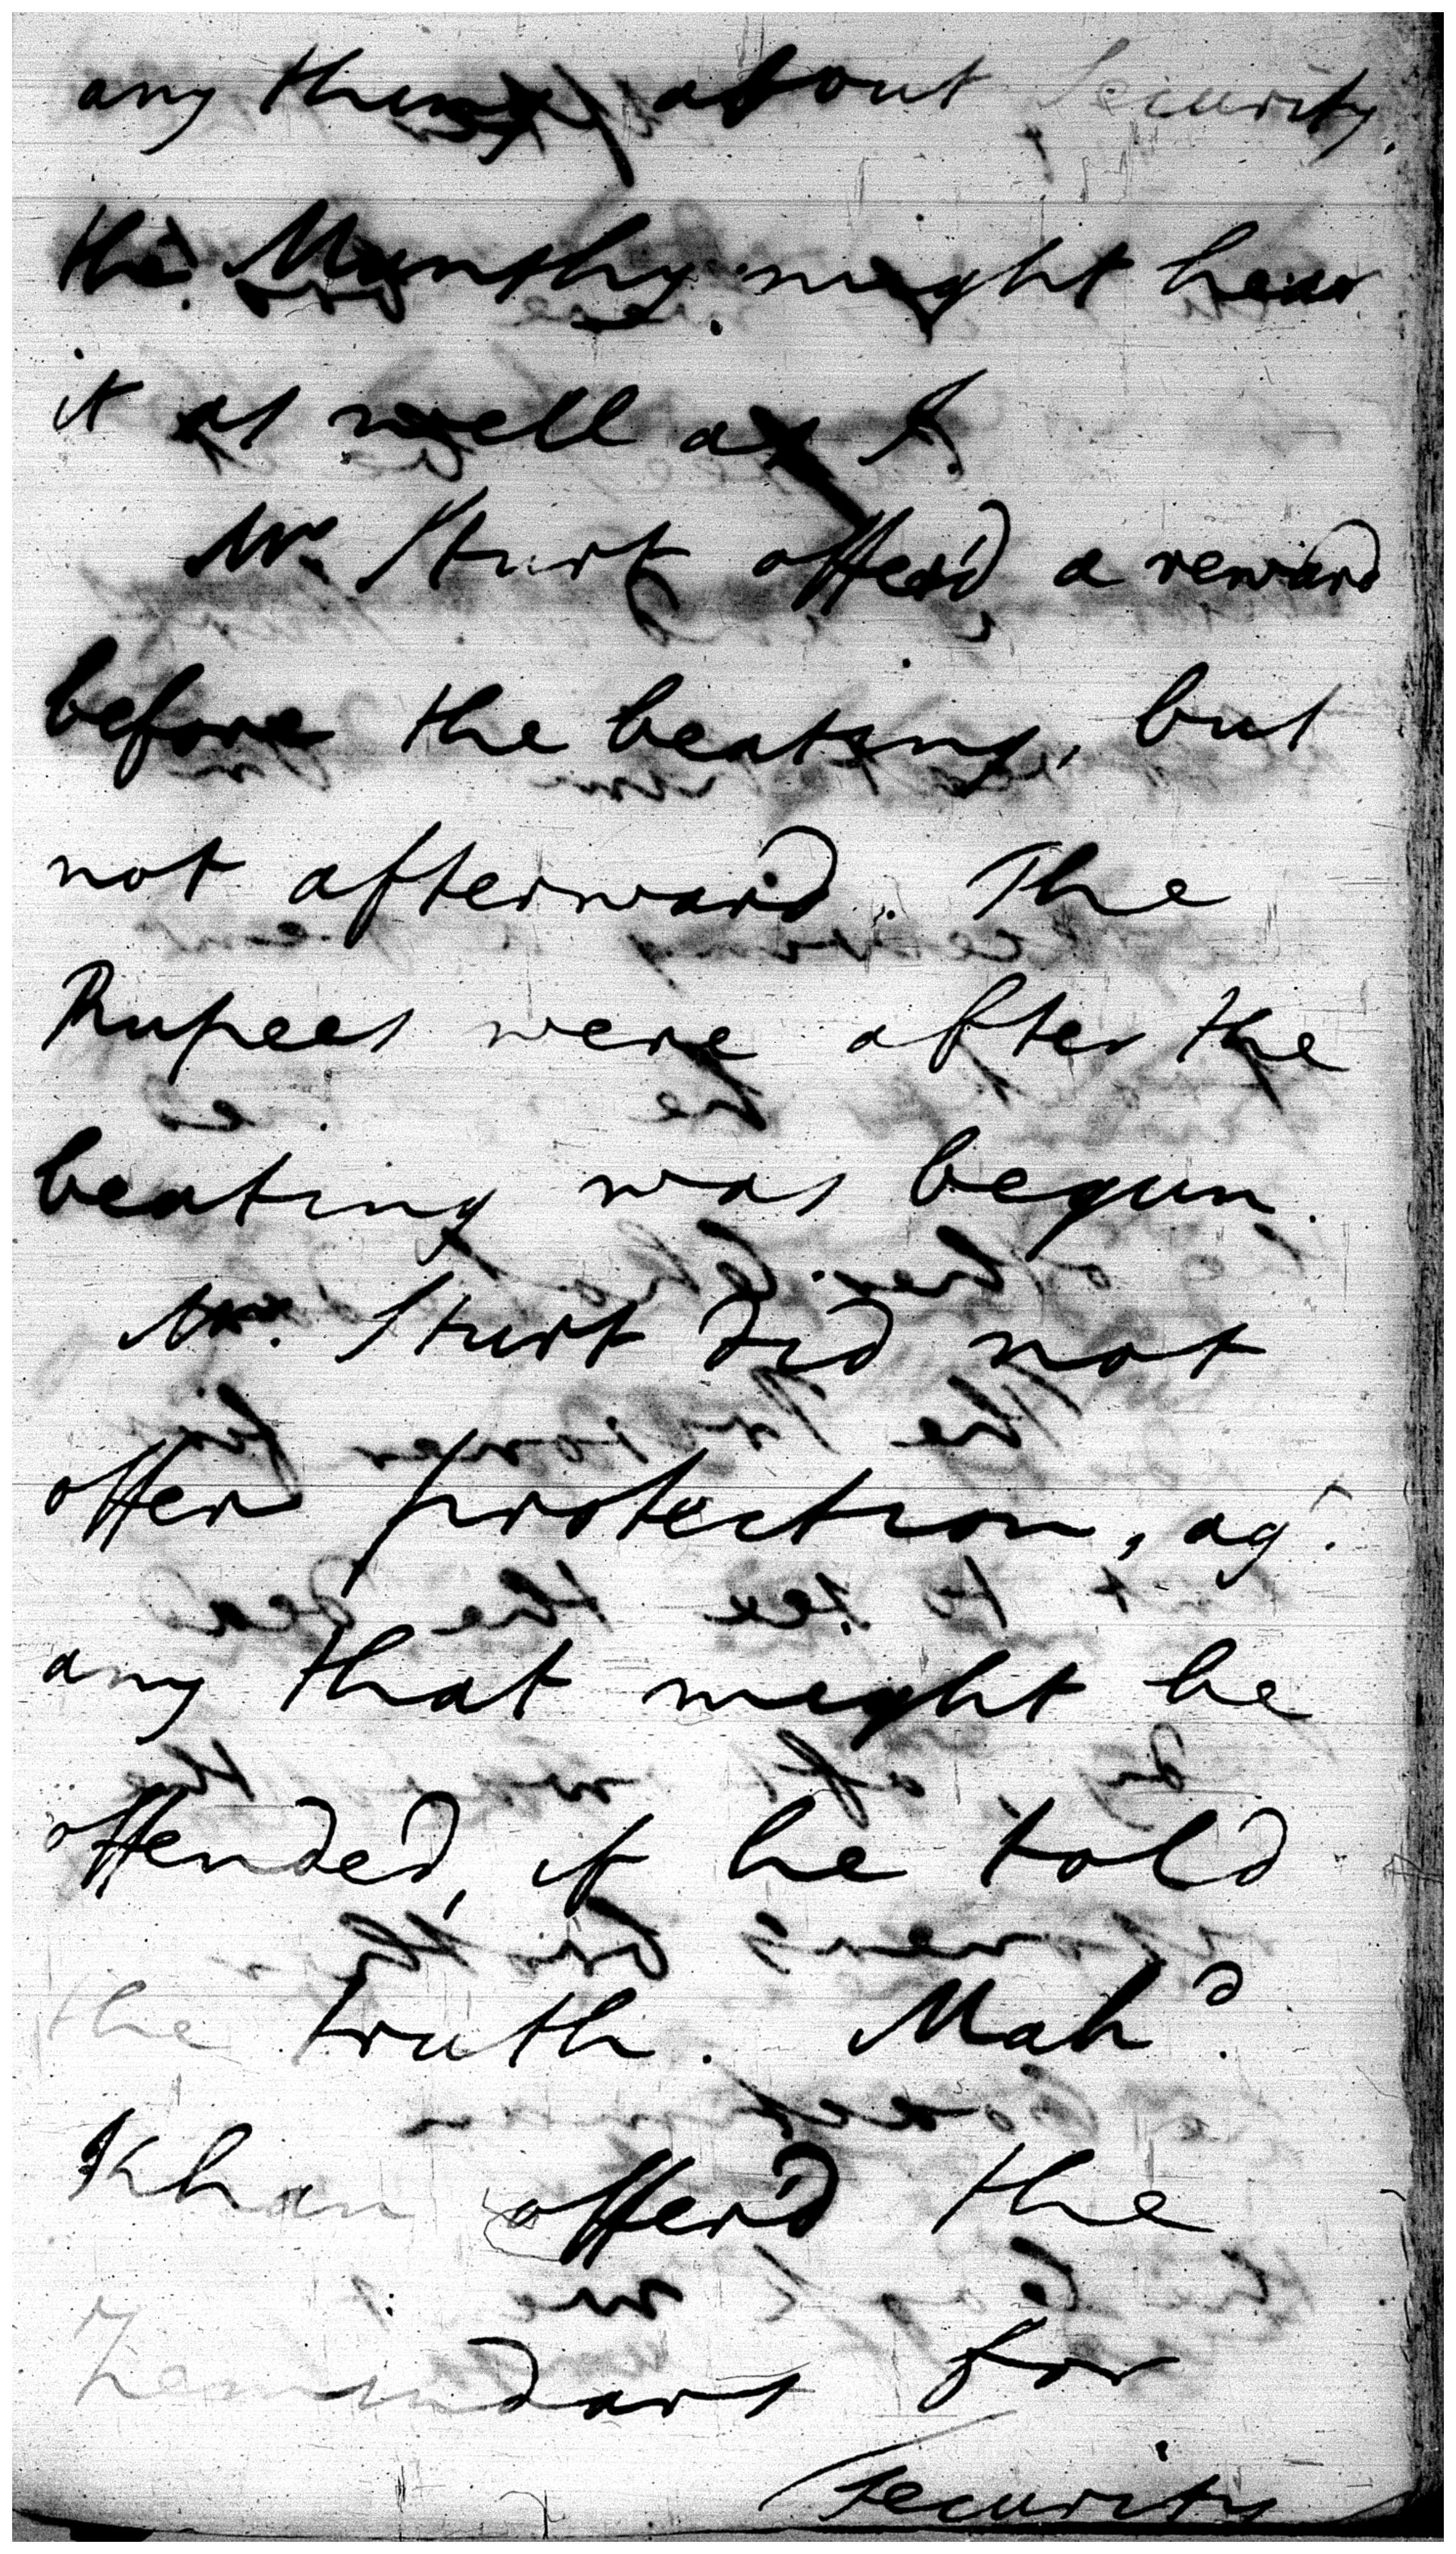 any thing about Security.
the Munshy might hear
it as well as I.
Mr. Sturt offer'd a reward
before the beating, but
not afterward. The
Rupees were after the
beating was begun.
Mr. Sturt did not
offer protection, agt.
any that might be
offended, if he told
the truth. Mahd.
Khan offer'd the
Zemindars for
Security